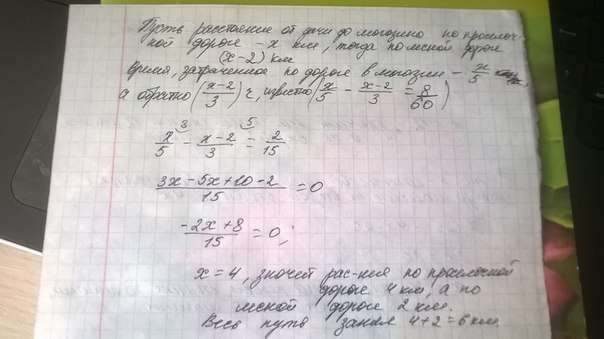 Пусть расстояние от дачи до магазина по просёлоч-
ной дороге - х км, тогда по лесной дороге
(х-2) км
Время, затраченное по дороге в магазин - х/5
а обратно (х-2)/3 ч, известно (х/5 - (х-2)/3 = 8/60)
3 5
х/5 - (х-2)/3 = 2/15
(3х-5х+10-2)/15 = 0
(-2х+8)/15 = 0;
х = 4, значит рас-ние по просёлочной
дороге 4 км, а по
лесной дороге 2 км.
Весь путь занял 4+2=6 км.